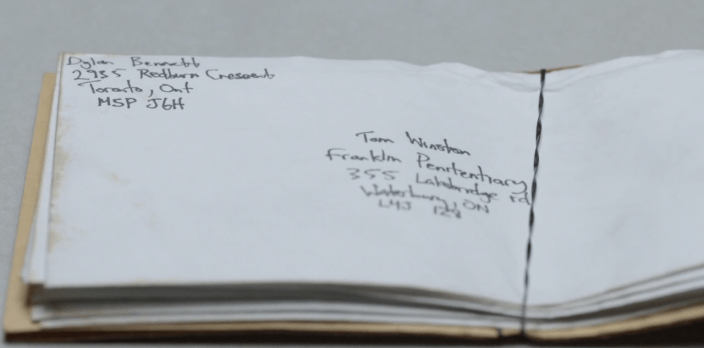 Dylan Bennett
2935 Redburn Crescent
Toronto, Ont
M5P J6H
Tom Winston
Franklin Penitentiary
355 Lakebridge rd
Waterbury, ON
L4J